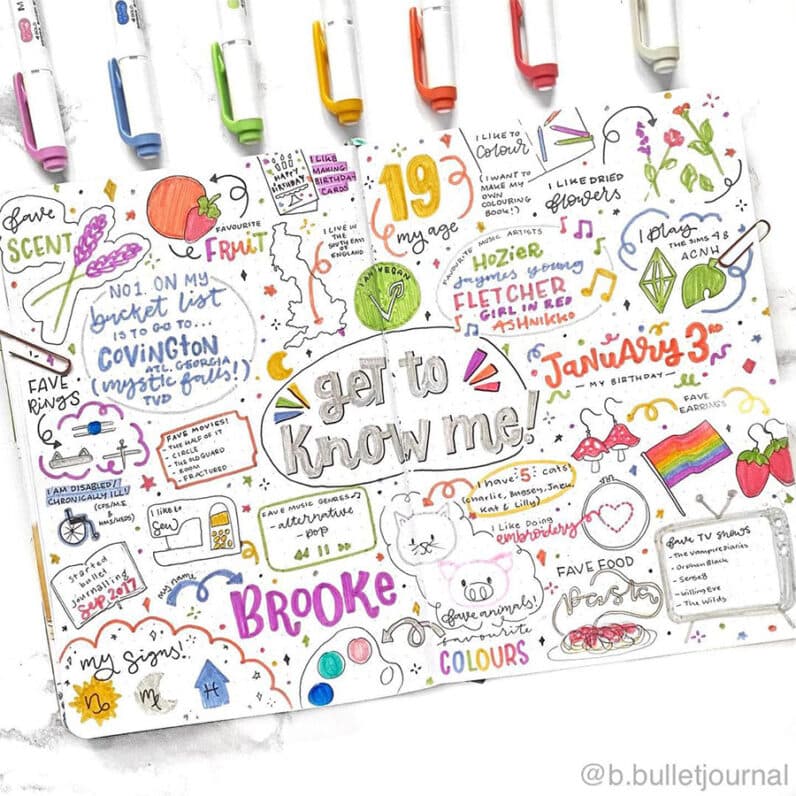 fave
SCENT
FAVOURITE
FRUIT
HAPPY
BIRTHDAY
I LIKE
MAKING
BIRTHDAY
CARDS
19
my age
I LIKE TO
Colour
(I WANT TO
MAKE MY
OWN
COLOURING
BOOK!)
I LIKE DRIED
flowers
NO1. ON MY
bucket list
IS TO GO TO...
COVINGTON
ATL, GEORGIA
(mystic falls!)
TVD
I LIVE IN
THE
SOUTH EAST
OF
ENGLAND
I AM VEGAN
FAVOURITE MUSIC ARTISTS
HOZIER
jaymes young
FLETCHER
GIRL IN RED
ASHNIKKO
I play
THE SIMS 4 &
ACNH
get to
know me!
JANUARY 3RD
— MY BIRTHDAY —
FAVE
RINGS
FAVE MOVIES!
- THE HALF OF IT
- CIRCLE
- THE OLD GUARD
- ROOM
- FRACTURED
FAVE
EARRINGS
I AM DISABLED/
CHRONICALLY ILL!
(CFS/ME
&
HMS/HEDS)
I like to
Sew
FAVE MUSIC GENRES
- alternative
- pop
I have 5 cats!
Kat & Lilly)
I like doing
embroidery
fave TV shows
- The Vampire Diaries
- Orphan Black
- Sense8
- Killing Eve
- The Wilds
started
bullet
journalling
Sep 2017
my name
BROOKE
fave animals!
FAVE FOOD
Pasta
favourite
COLOURS
my signs!
♑ ♏ ♓
@b.bulletjournal